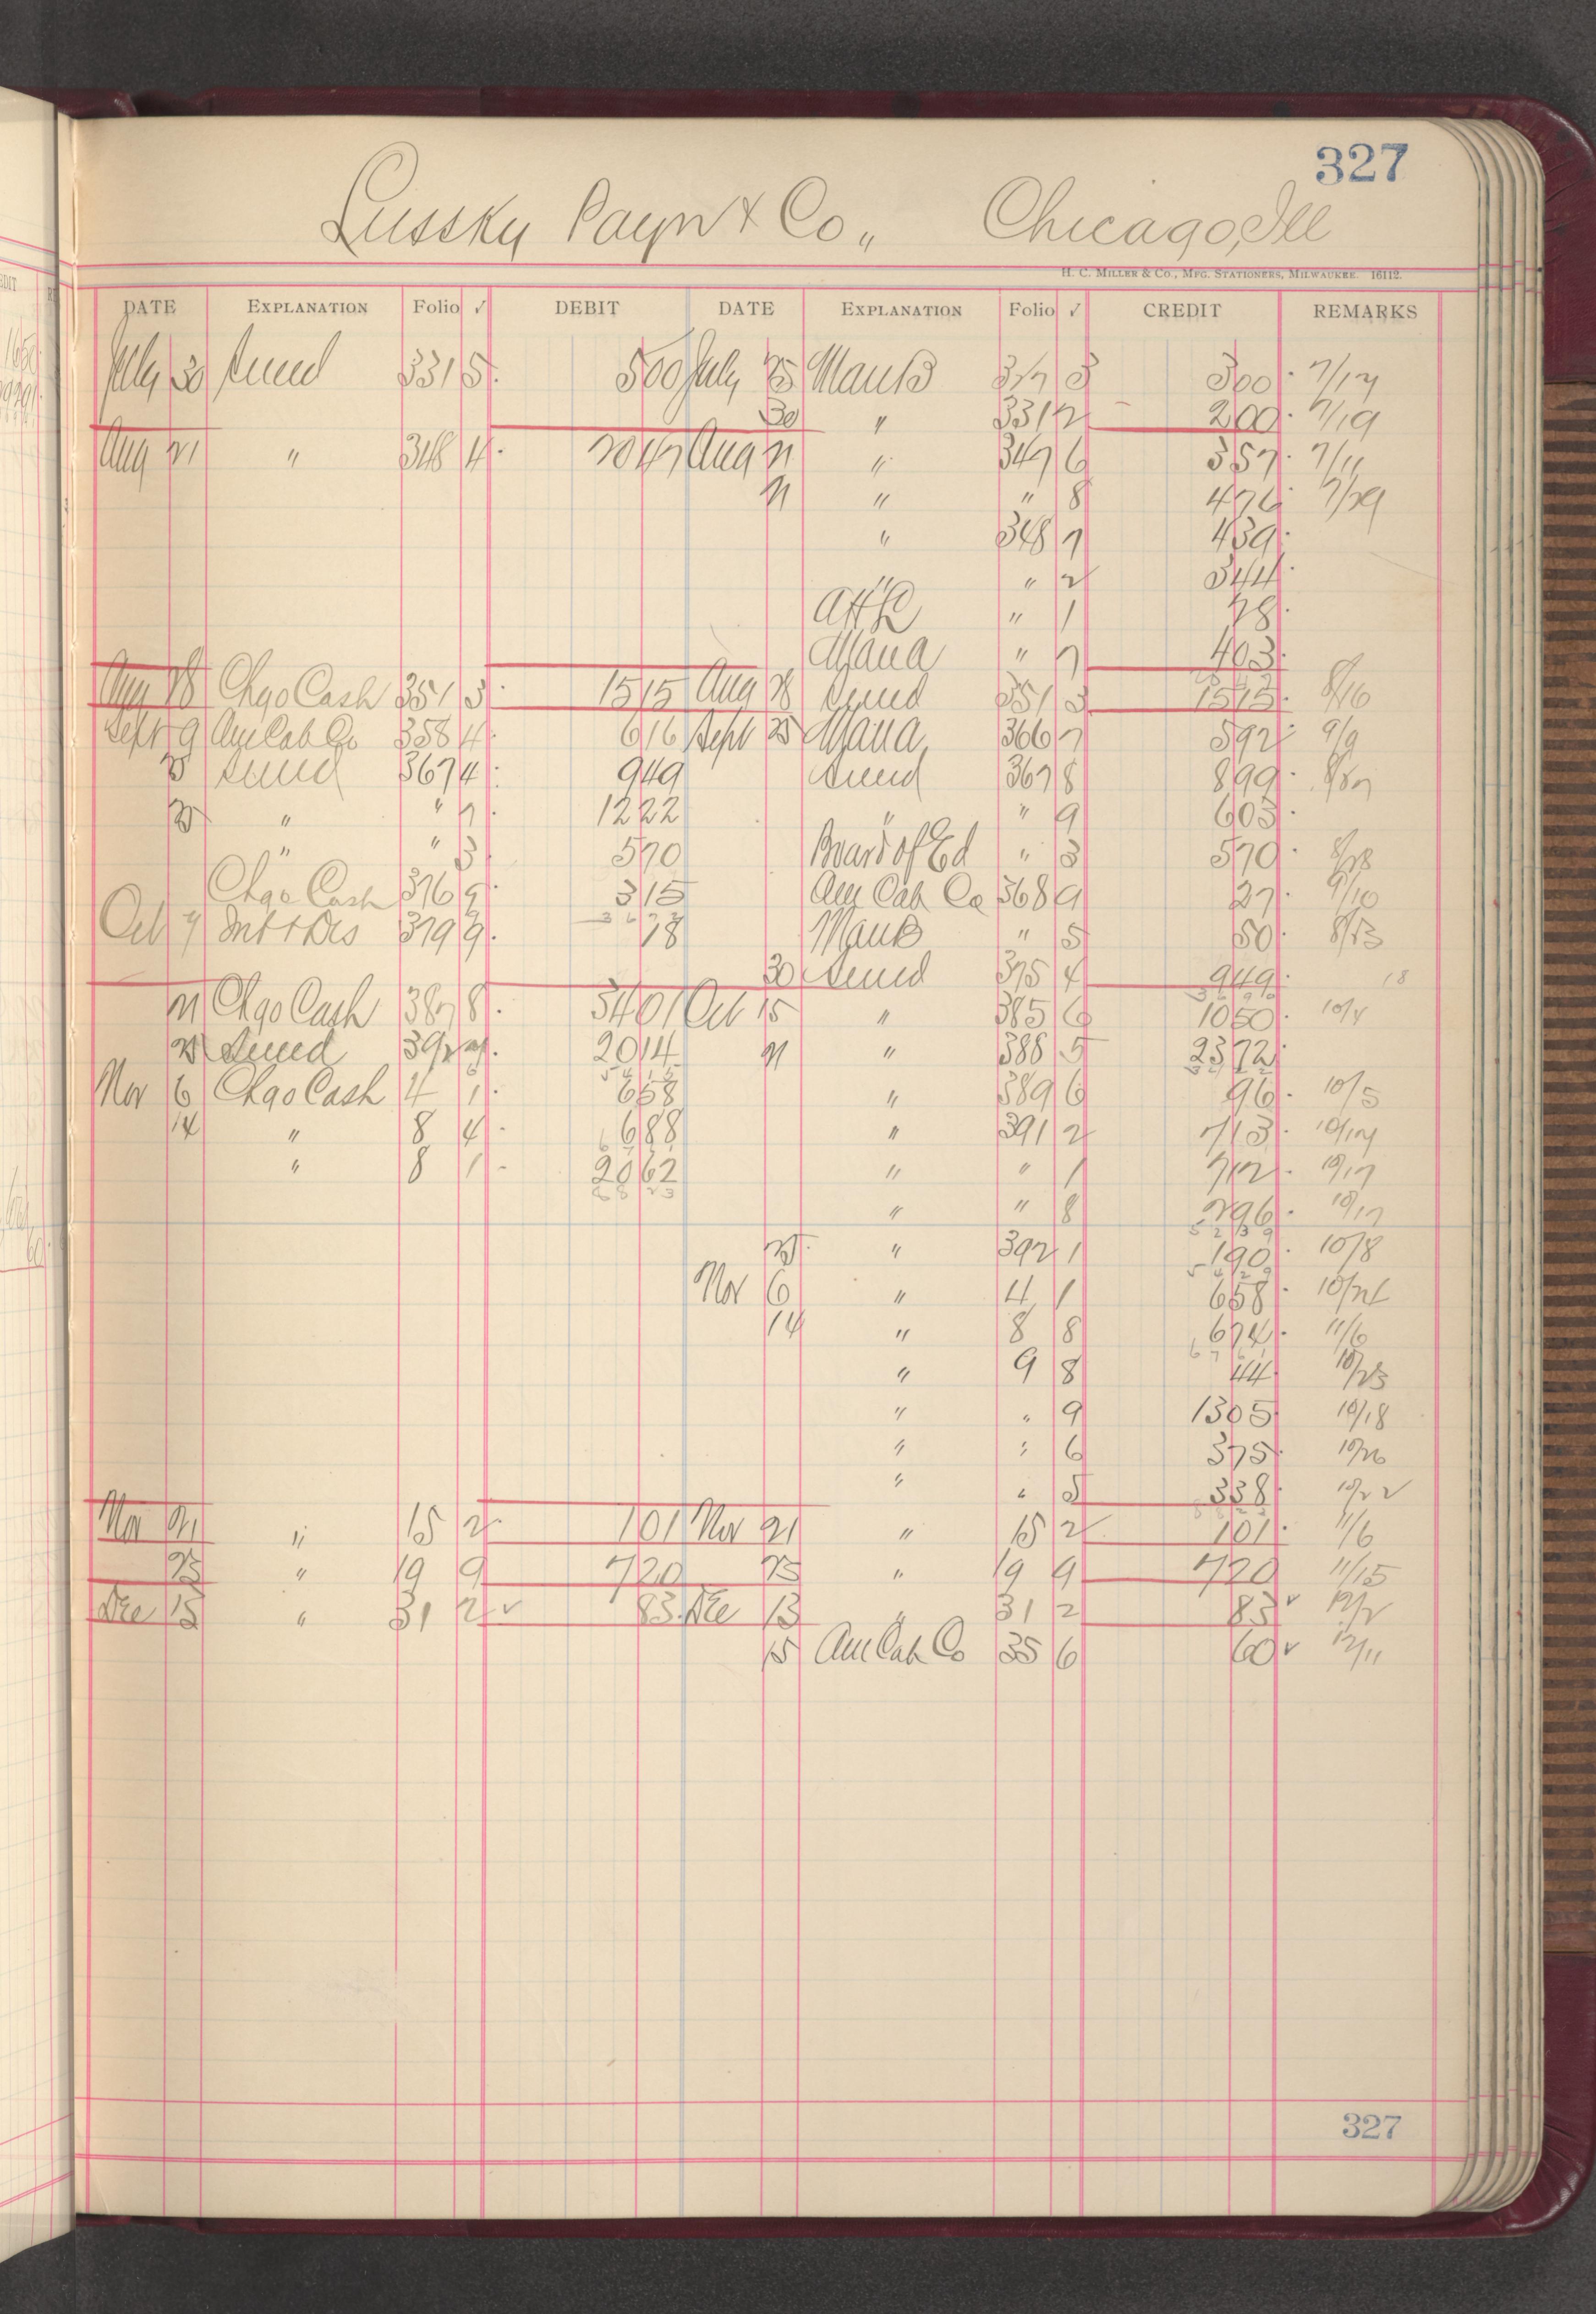 327
Lussky Payn & Co., Chicago, Ill
H. C. Miller & Co., Mfg. Stationers, Milwaukee. 16112.
DATE EXPLANATION Folio ✓ DEBIT DATE EXPLANATION Folio ✓ CREDIT REMARKS
July 30 Sund 331 5 5 00 July 25 Manß 327 3 3 00 7/17
30 " 331 2 2 00 7/19
Aug 21 " 348 4 20 47 Aug 21 " 347 6 3 57 7/11
21 " " 8 4 76 7/29
" 348 7 4 39
" " 2 3 44
" 1 28
Mana " 7 4 03
Aug 28 Chgo Cash 351 3 15 15 Aug 28 Sund 351 3 15 15 8/16
Sept 9 Am Cab Co 358 4 6 16 Sept 25 Mana 366 7 5 92 9/9
25 Sund 367 4 9 49 Sund 367 8 8 99 8/27
25 " " 7 12 22 " " 9 6 03
" " 3 5 70 Board of Ed " 3 5 70 8/28
Chgo Cash 376 9 3 15 Am Cab Co 368 9 27 9/10
Oct 7 Int & Dis 379 9 18 Manß " 5 50 8/23
30 Sund 375 4 9 49 18
21 Chgo Cash 387 8 34 01 Oct 15 " 385 6 10 50 10/4
25 Sund 392 20 14 21 " 388 5 23 72
Nov 6 Chgo Cash 4 1 6 58 " 389 6 96 10/5
14 " 8 4 6 88 " 391 2 7 13 10/14
" 8 1 20 62 " " 1 7 12 10/17
" " 8 2 96 10/17
25 " 392 1 1 90 10/8
Nov 6 " 4 1 6 58 10/24
14 " 8 8 6 74 11/6
" 9 8 44 10/23
" " 9 13 05 10/18
" " 6 3 75 10/26
" " 5 3 38 10/22
Nov 21 " 15 2 1 01 Nov 21 " 15 2 1 01 11/6
25 " 19 9 7 20 25 " 19 9 7 20 11/15
Dec 13 " 31 2 ✓ 83 Dec 13 " 31 2 83 ✓ 12/2
15 Am Cab Co 35 6 60 ✓ 12/11
327